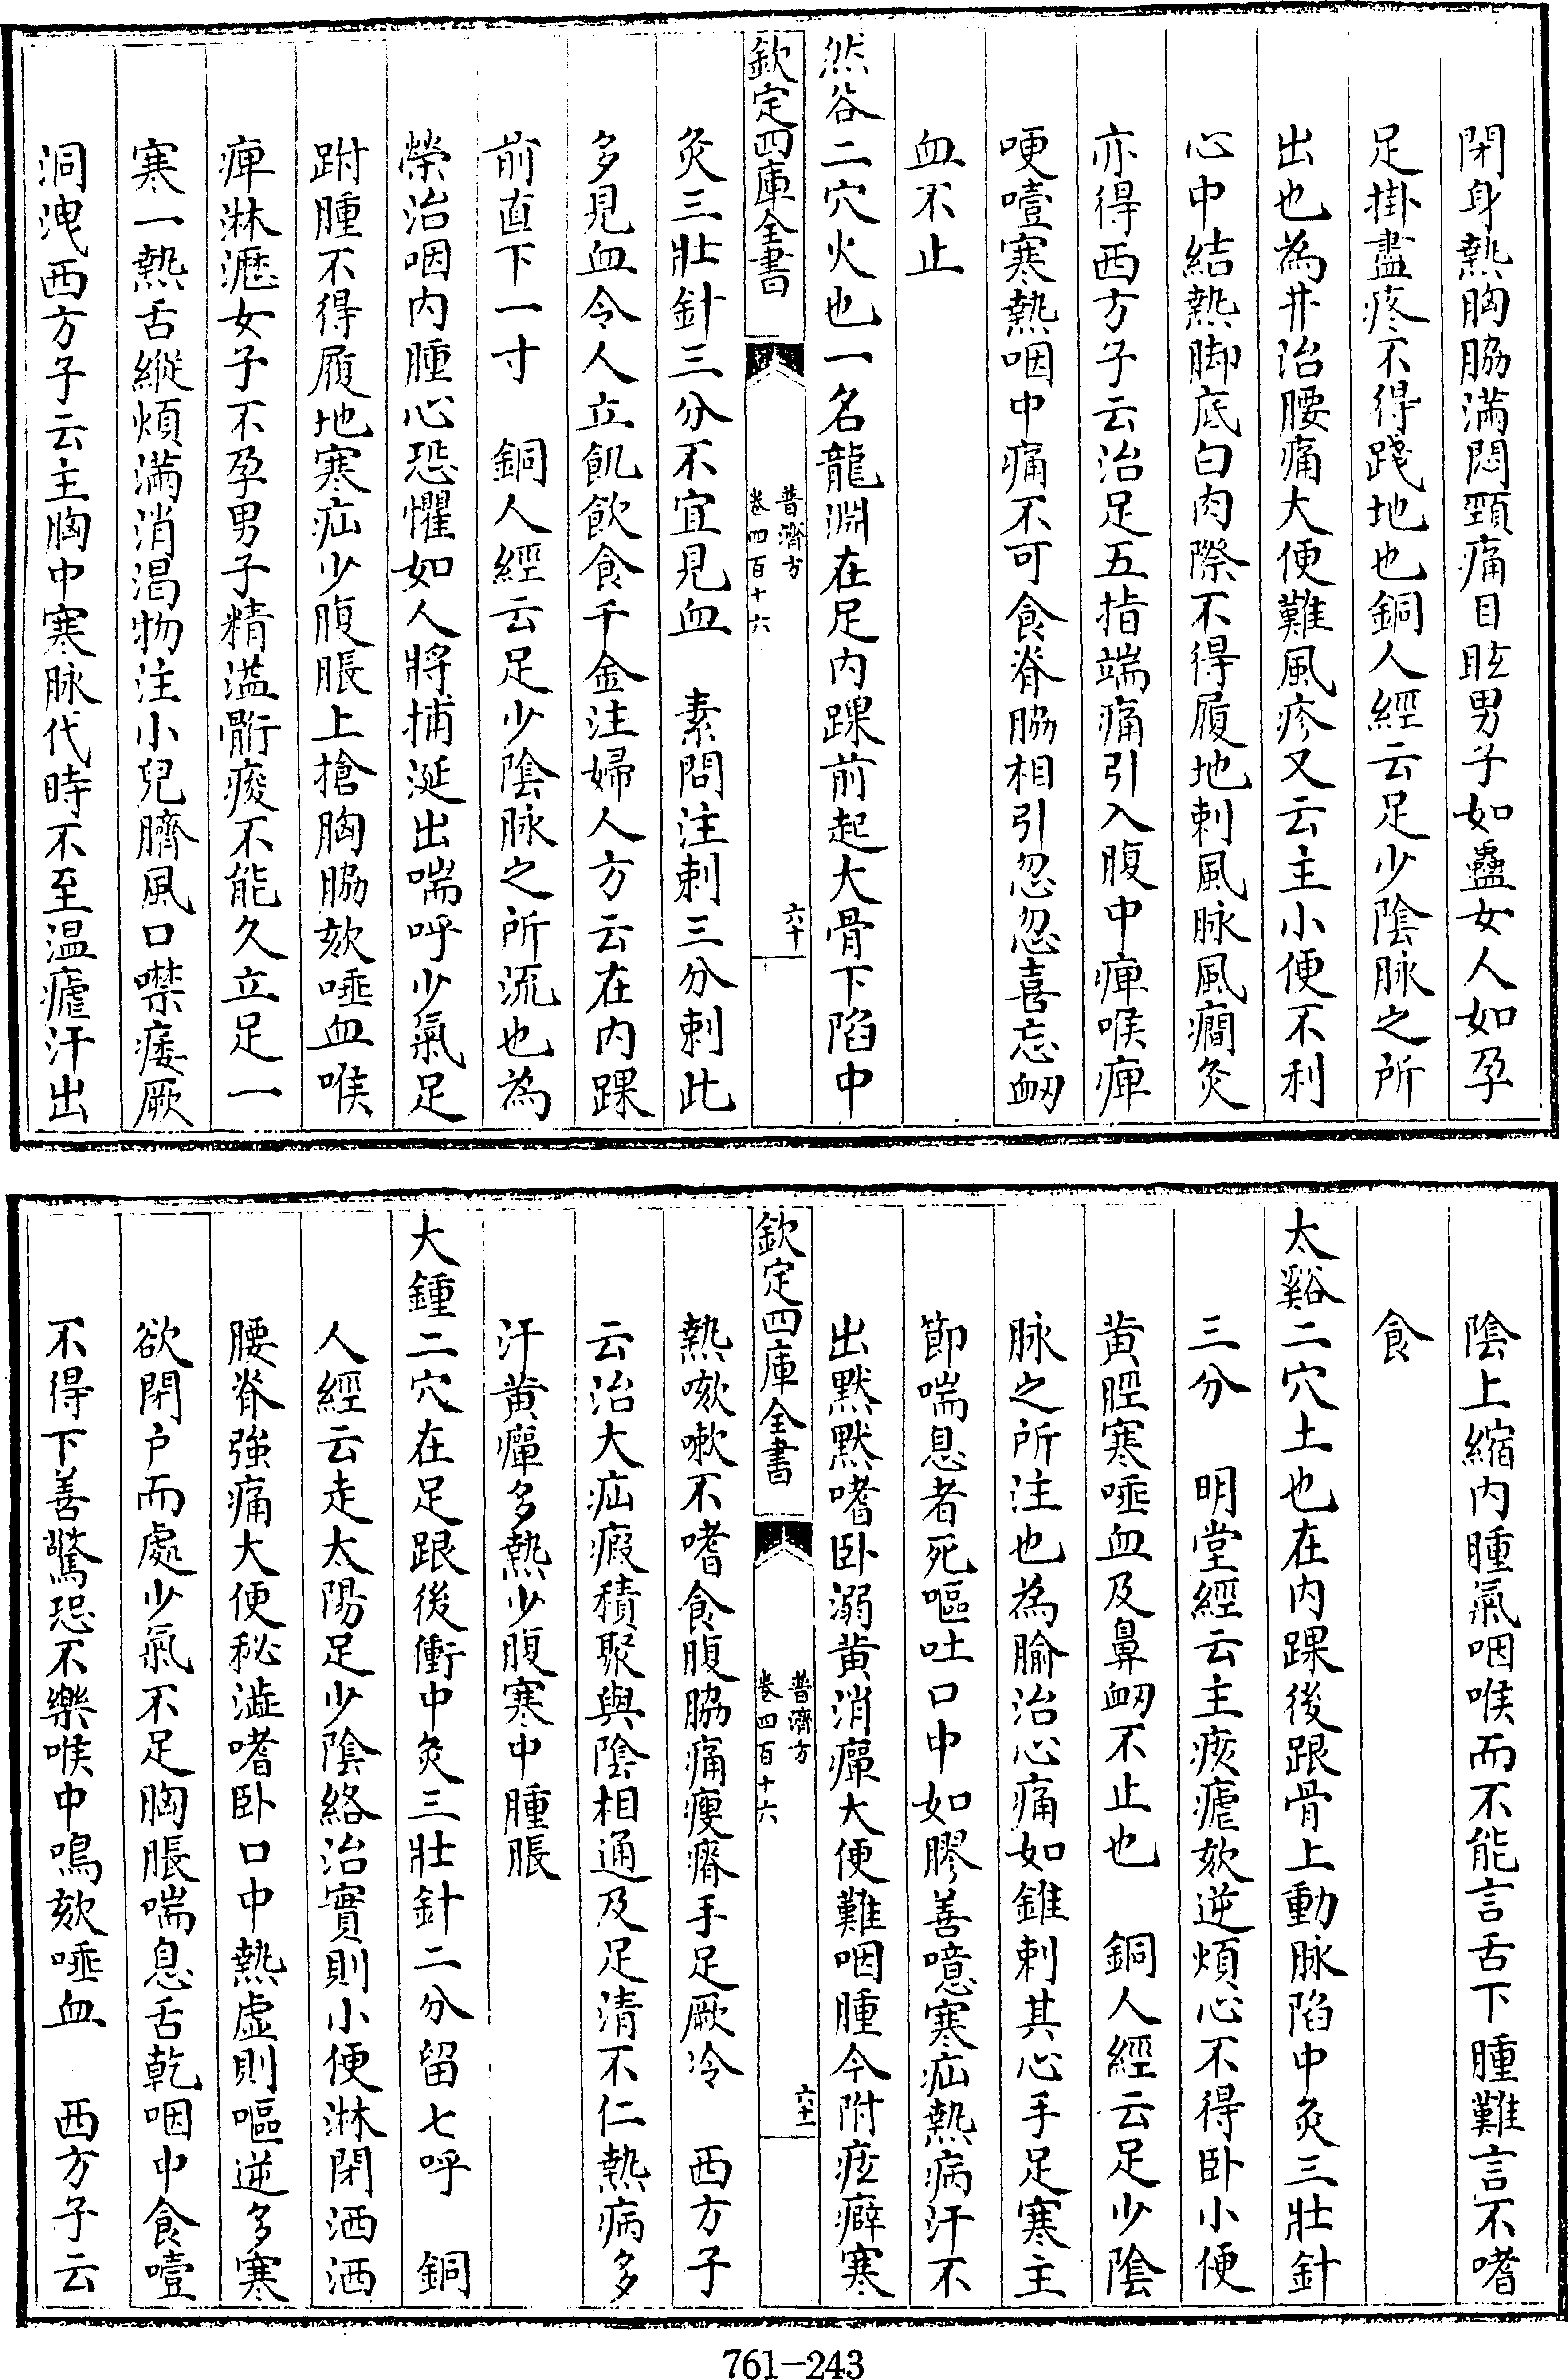 閉身熱胸脇滿悶頸痛目眩男子如蠱女人如孕
足掛盡疼不得踐地也銅人經云足少陰脉之所
出也為井治腰痛大便難風疹又云主小便不利
心中結熱脚底白肉際不得履地刺風脉風癇灸
亦得西方子云治足五指端痛引入腹中痺喉痺
哽噎寒熱咽中痛不可食脊脇相引忽忽喜忘衂
血不止
然谷二穴火也一名龍淵在足内踝前起大骨下陷中
欽定四庫全書
普濟方
卷四百十六
六十
灸三壯針三分不宜見血　素問注刺三分刺此
多見血令人立飢飲食千金注婦人方云在内踝
前直下一寸　銅人經云足少陰脉之所流也為
榮治咽内腫心恐懼如人將捕涎出喘呼少氣足
跗腫不得履地寒疝少腹脹上搶胸脇欬唾血喉
痺淋瀝女子不孕男子精溢䯒痠不能久立足一
寒一熱舌縱煩滿消渴物注小兒臍風口噤痿厥
洞洩西方子云主胸中寒脉代時不至温瘧汗出
陰上縮内腫氣咽喉而不能言舌下腫難言不嗜
食
太谿二穴土也在内踝後跟骨上動脉陷中灸三壯針
三分　明堂經云主痎瘧欬逆煩心不得卧小便
黄脛寒唾血及鼻衂不止也　銅人經云足少陰
脉之所注也為腧治心痛如錐刺其心手足寒主
節喘息者死嘔吐口中如膠善噫寒疝熱病汗不
出黙黙嗜卧溺黄消癉大便難咽腫今附痃癖寒
欽定四庫全書
普濟方
卷四百十六
六十一
熱咳嗽不嗜食腹脇痛瘦瘠手足厥冷　西方子
云治大疝瘕積聚與陰相通及足清不仁熱病多
汗黄癉多熱少腹寒中腫脹
大鍾二穴在足跟後衝中灸三壯針二分留七呼　銅
人經云走太陽足少陰絡治實則小便淋閉洒洒
腰脊強痛大便秘澁嗜卧口中熱虚則嘔逆多寒
欲閉户而處少氣不足胸脹喘息舌乾咽中食噎
不得下善驚恐不樂喉中鳴欬唾血　西方子云
761-243